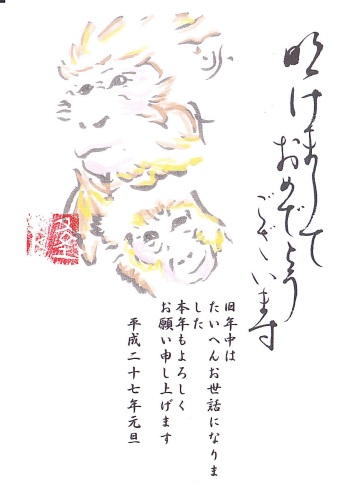 明けまして
おめでとう
ございます
旧年中は
たいへんお世話になりま
した
本年もよろしく
お願い申し上げます
平成二十七年元旦